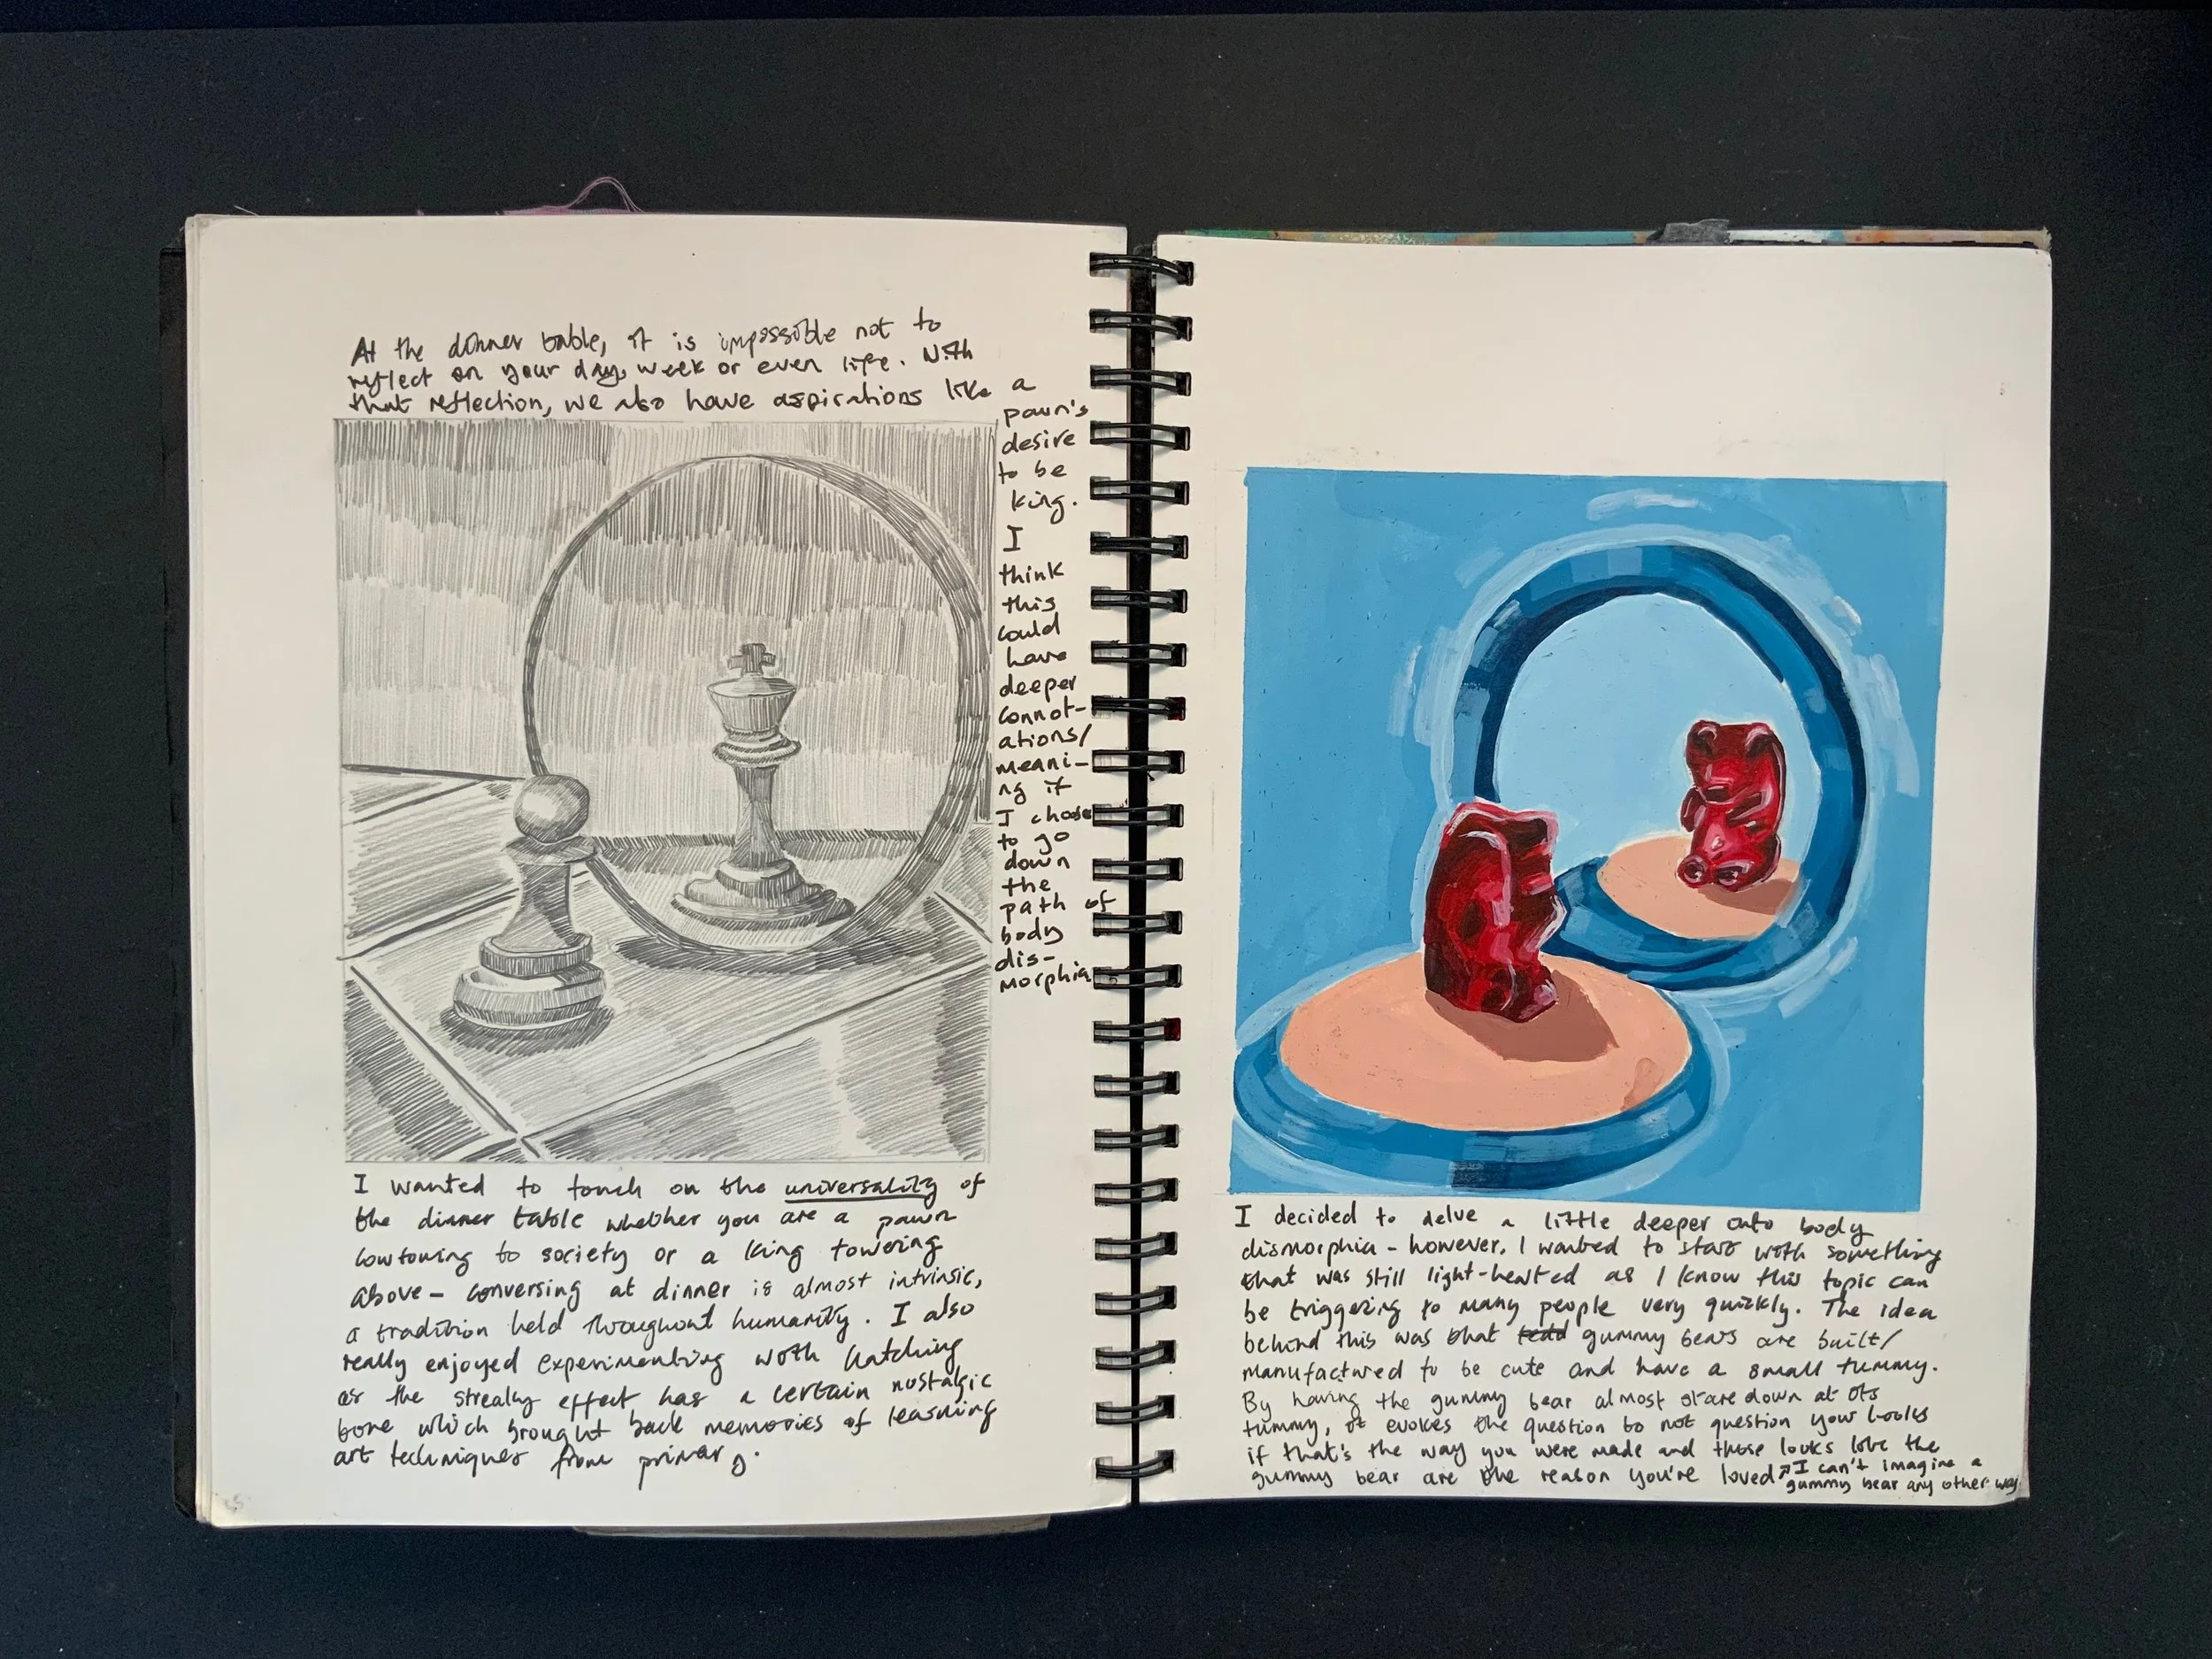 At the dinner table, it is impossible not to
reflect on your day, week or even life. With
that reflection, we also have aspirations like a
pawn's
desire
to be
king.
I
think
this
could
have
deeper
connot-
ations/
meani-
ng if
I chose
to go
down
the
path of
body
dis-
morphia
I wanted to touch on the universality of
the dinner table whether you are a pawn
cowtowing to society or a king towering
above - conversing at dinner is almost intrinsic,
a tradition held throughout humanity. I also
really enjoyed experimenting with hatching
as the streaky effect has a certain nostalgic
tone which brought back memories of learning
art techniques from primary.
I decided to delve a little deeper into body
dismorphia - however, I wanted to start with something
that was still light-hearted as I know this topic can
be triggering to many people very quickly. The idea
behind this was that gummy bears are built/
manufactured to be cute and have a small tummy.
By having the gummy bear almost stare down at its
tummy, it evokes the question to not question your looks
if that's the way you were made and those looks like the
gummy bear are the reason you're loved ↗ I can't imagine a
gummy bear any other way.